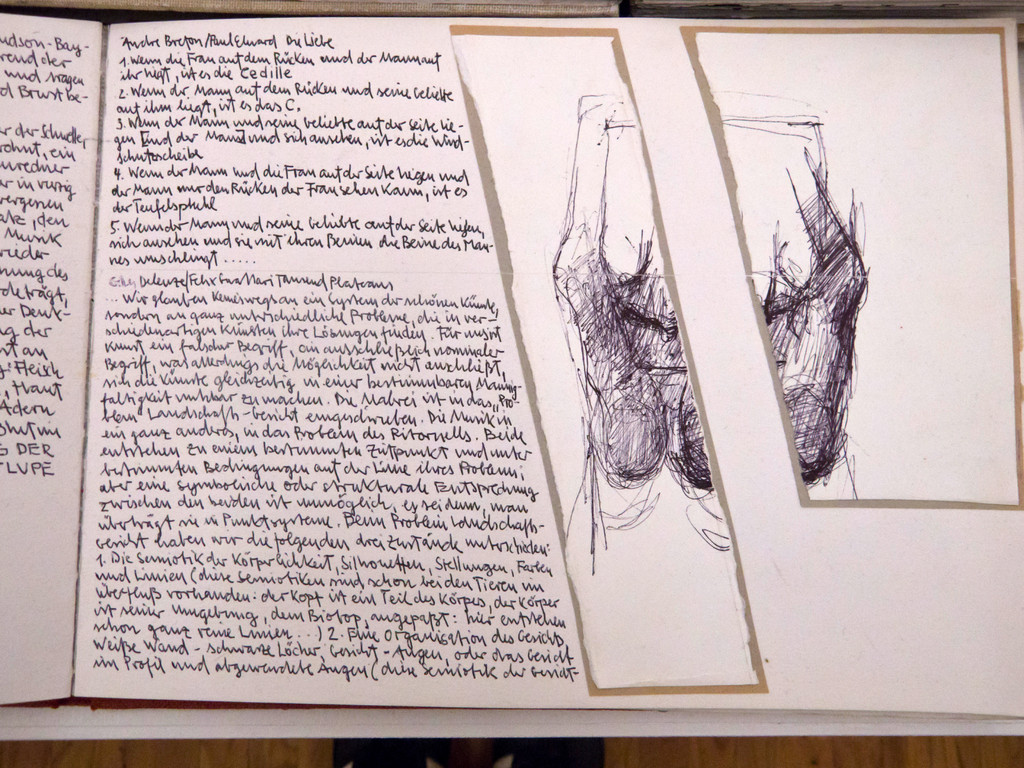 udson-Bay-
rend der
und tragen
d Brust be-
er der Schneller
wohnt, ein
nredner
er in vierzig
vergenen
atz, den
Musik
wieder
nung des
de trägt,
er Denk-
ng der
nt an
g: Fleisch
, Haut
Adern
G DER
LUPE
Andre Breton/Paul Eluard Die Liebe
1. Wenn die Frau auf dem Rücken und der Mann auf
ihr liegt, ist es die Cedille
2. Wenn der Mann auf dem Rücken und seine Geliebte
auf ihm liegt, ist es das C.
3. Wenn der Mann und seine Geliebte auf der Seite lie-
gen und sich ansehen, ist es die Wind-
schutzscheibe
4. Wenn der Mann und die Frau auf der Seite liegen und
der Mann nur den Rücken der Frau sehen kann, ist es
der Teufelspfuhl
5. Wenn der Mann und seine Geliebte auf der Seite liegen,
sich ansehen und sie mit ihren Beinen die Beine des Man-
nes umschlingt .....
Deleuze/Felix Guattari Tausend Plateaus
... Wir glauben keineswegs an ein System der schönen Künste,
sondern an ganz unterschiedliche Probleme, die in ver-
schiedenartigen Künsten ihre Lösungen finden. Für uns ist
Kunst ein falscher Begriff, ein ausschließlich nominaler
Begriff, was allerdings die Möglichkeit nicht ausschließt,
sich die Künste gleichzeitig in einer bestimmbaren Mannig-
faltigkeit nutzbar zu machen. Die Malerei ist in das „Pro-
blem Landschaft-Gesicht eingeschrieben. Die Musik in
ein ganz anderes, in das Problem des Ritornells. Beide
entstehen zu einem bestimmten Zeitpunkt und unter
bestimmten Bedingungen auf der Linie ihres Problems;
aber eine symbolische oder strukturale Entsprechung
zwischen den beiden ist unmöglich, es sei denn, man
überträgt sie in Punktsysteme. Beim Problem Landschafts-
Gesicht haben wir die folgenden drei Zustände unterschieden:
1. Die Semiotik der Körperlichkeit, Silhouetten, Stellungen, Farben
und Linien (diese Semiotiken sind schon bei den Tieren im
Überfluß vorhanden: der Kopf ist ein Teil des Körpers, der Körper
ist seiner Umgebung, dem Biotop, angepaßt: hier entstehen
schon ganz reine Linien ...) 2. Eine Organisation des Gesichts,
Weiße Wand - schwarze Löcher, Gesicht - Augen, oder das Gesicht
im Profil und abgewendete Augen (diese Semiotik der Gesicht-